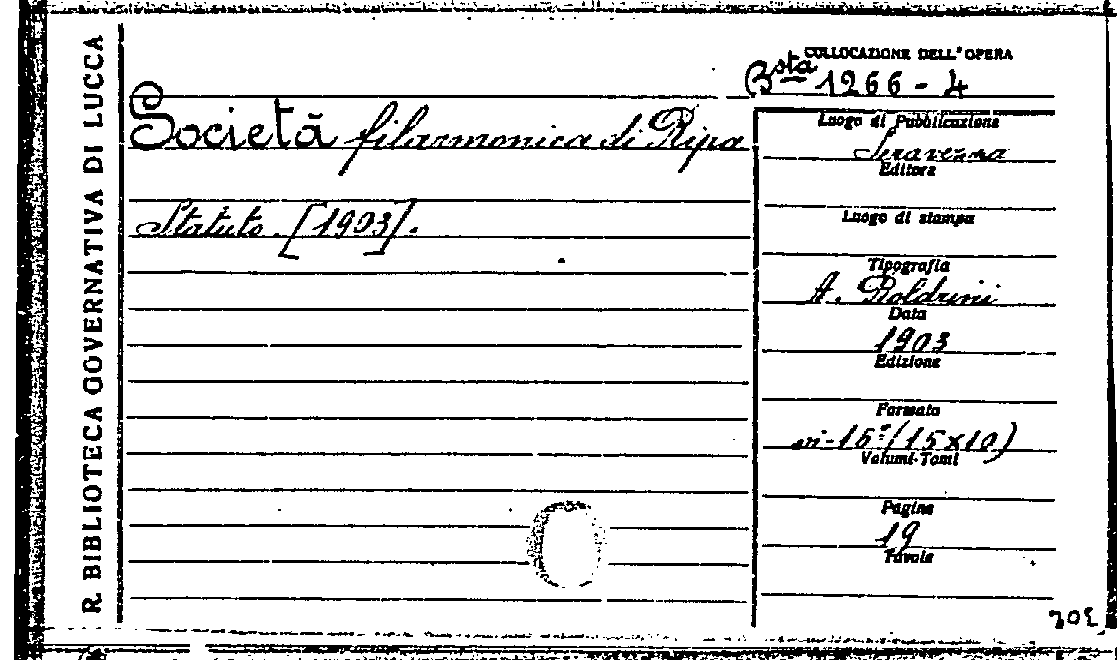 R. BIBLIOTECA GOVERNATIVA DI LUCCA
COLLOCAZIONE DELL'OPERA
Bsta 1266 - 4
Società filarmonica di Ripa
Statuto. [1903].
Luogo di Pubblicazione
Seravezza
Editore
Luogo di stampa
Tipografia
A. Boldrini
Data
1903
Edizione
Formato
in-15º (15x10)
Volumi-Tomi
Pagine
19
Tavole